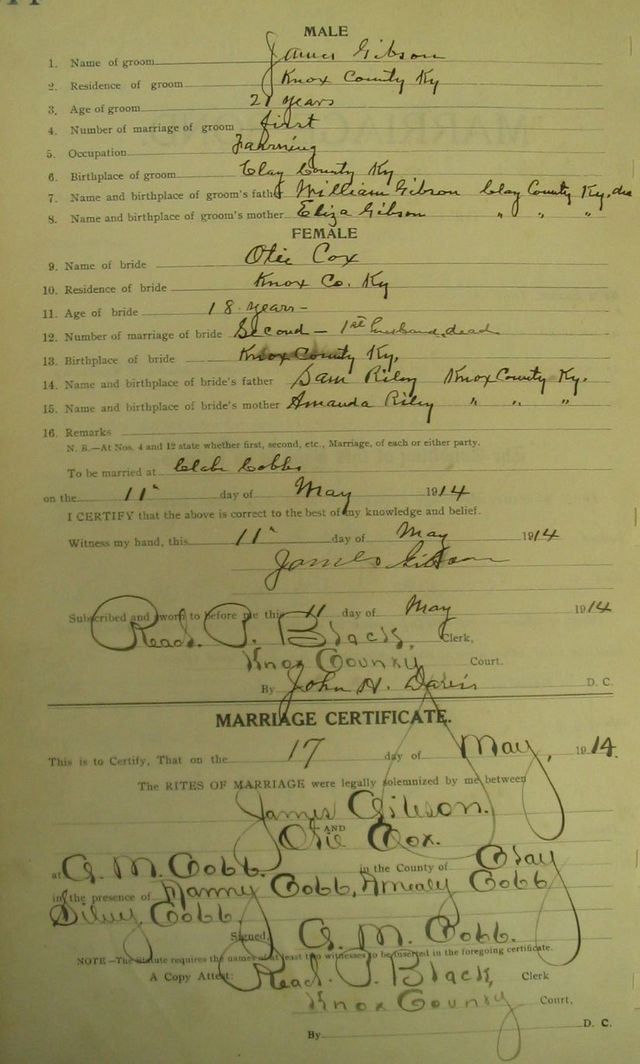 MALE
1. Name of groom James Gibson
2. Residence of groom Knox County Ky
3. Age of groom 21 years
4. Number of marriage of groom first
5. Occupation Farming
6. Birthplace of groom Clay County Ky
7. Name and birthplace of groom's father William Gibson Clay County Ky.
8. Name and birthplace of groom's mother Eliza Gibson " " "
FEMALE
9. Name of bride Otie Cox
10. Residence of bride Knox Co. Ky
11. Age of bride 18 years-
12. Number of marriage of bride Second - 1st husband dead
13. Birthplace of bride Knox County Ky.
14. Name and birthplace of bride's father Sam Riley Knox County Ky.
15. Name and birthplace of bride's mother Amanda Riley " " "
16. Remarks
N. B.-At Nos. 4 and 12 state whether first, second, etc., Marriage, of each or either party.
To be married at Cobbs
on the 11" day of May 1914
I CERTIFY that the above is correct to the best of my knowledge and belief.
Witness my hand, this 11" day of May 1914
James Gibson
Subscribed and sworn to before me this 11 day of May 1914
Read. P. Black, Clerk,
Knox County Court.
By John H. Davis D. C.
MARRIAGE CERTIFICATE.
This is to Certify, That on the 17 day of May, 1914.
The RITES OF MARRIAGE were legally solemnized by me between
James Gibson.
AND
Otie Cox.
at G. M. Cobb. in the County of Clay
in the presence of Manny Cobb, Cobb
Cobb.
Signed G. M. Cobb.
NOTE-The Statute requires the names of at least two witnesses to be inserted in the foregoing certificate.
A Copy Attest: Read. P. Black, Clerk
Knox County Court,
By D. C.